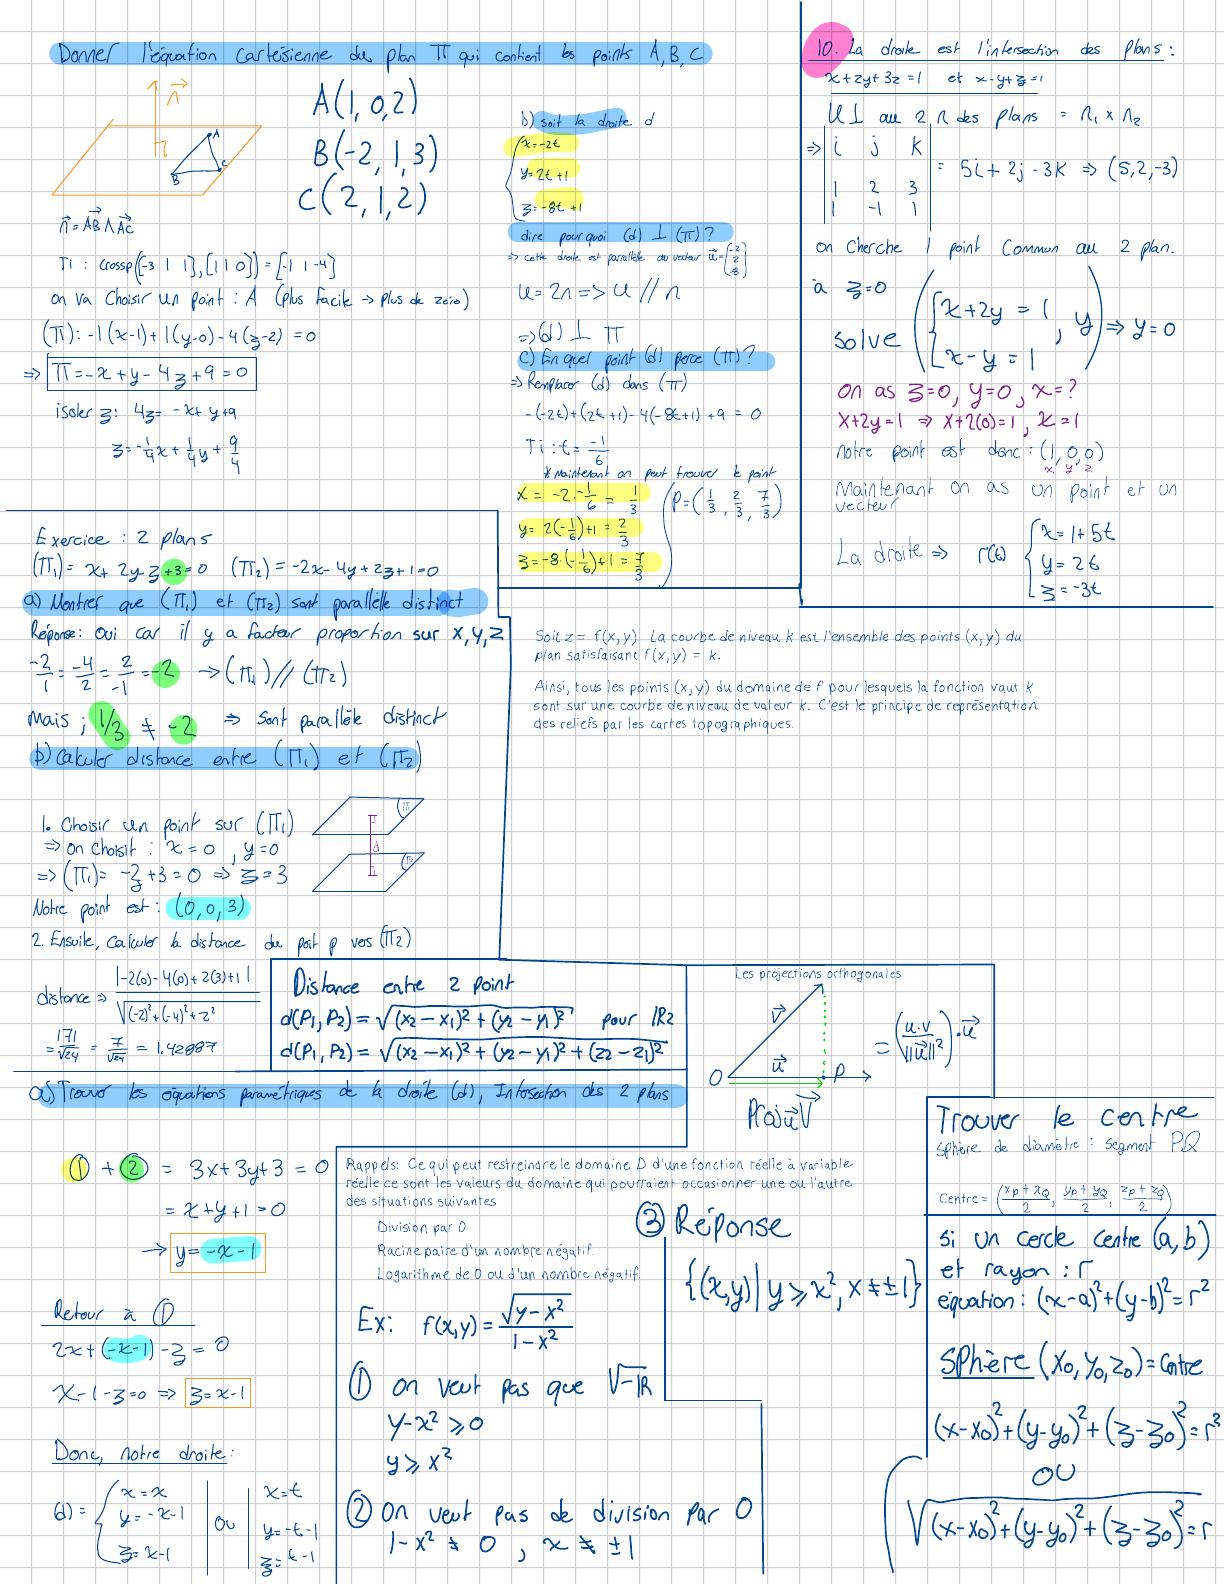 Donner l'équation cartésienne du plan π qui contient les points A, B, C
n⃗
A
B
C
A(1, 0, 2)
B(-2, 1, 3)
C(2, 1, 2)
n⃗ = AB⃗ ∧ AC⃗
Ti : crossp([-3 1 1],[1 1 0]) = [-1 1 -4]
on va choisir un point : A (plus facile → plus de zéro)
(π): -1(x-1)+1(y-0)-4(z-2) = 0
⇒ π = -x + y - 4z + 9 = 0
isoler z: 4z = -x + y + 9
z = -1/4x + 1/4y + 9/4
b) soit la droite d
x = -2t
y = 2t + 1
z = -8t + 1
dire pourquoi (d) ⊥ (π)?
⇒ cette droite est parallèle au vecteur u⃗ = (-2 2 -8)
u = 2n => u // n
⇒ (d) ⊥ π
c) En quel point (d) perce (π)?
⇒ Remplacer (d) dans (π)
-(-2t)+(2t+1)-4(-8t+1)+9 = 0
Ti : t = -1/6
* Maintenant on peut trouver le point
x = -2·-1/6 = 1/3
y = 2(-1/6)+1 = 2/3
z = -8·(-1/6)+1 = 7/3
P = (1/3, 2/3, 7/3)
10. La droite est l'intersection des plans :
x+2y+3z=1 et x-y+z=1
u ⊥ au 2 n des plans = n₁ × n₂
⇒ | i j k |
| 1 2 3 | = 5i + 2j - 3k ⇒ (5,2,-3)
| 1 -1 1 |
on cherche 1 point commun au 2 plan.
à z=0
solve ({x+2y = 1, x-y = 1}, y) ⇒ y=0
on as z=0, y=0, x=?
x+2y=1 ⇒ x+2(0)=1, x=1
notre point est donc : (1, 0, 0)
x y z
Maintenant on as un point et un
vecteur
La droite ⇒ r(t) { x = 1+5t
y = 2t
z = -3t
Exercice : 2 plans
(π₁)= x+2y-z+3=0 (π₂)= -2x-4y+2z+1=0
a) Montrer que (π₁) et (π₂) sont parallèle distinct
Réponse: oui car il y a facteur proportion sur x,y,z
-2/1 = -4/2 = 2/-1 = -2 → (π₁) // (π₂)
Mais ; 1/3 ≠ -2 ⇒ sont parallèle distinct
b) Calculer distance entre (π₁) et (π₂)
1. Choisir un point sur (π₁)
⇒ on choisit : x=0, y=0
⇒ (π₁) = -z+3=0 ⇒ z=3
Notre point est : (0, 0, 3)
d
2. Ensuite, calculer la distance du poit p vers (π₂)
distance ⇒ |-2(0)-4(0)+2(3)+1| / √((-2)²+(-4)²+2²)
= |7|/√24 = 7/√24 = 1,42887
Soit z = f(x, y) La courbe de niveau k est l'ensemble des points (x, y) du
plan satisfaisant f(x, y) = k.
Ainsi, tous les points (x, y) du domaine de f pour lesquels la fonction vaut k
sont sur une courbe de niveau de valeur k. C'est le principe de représentation
des reliefs par les cartes topographiques.
Distance entre 2 point
d(P₁, P₂) = √((x₂-x₁)² + (y₂-y₁)²) pour IR2
d(P₁, P₂) = √((x₂-x₁)² + (y₂-y₁)² + (z₂-z₁)²)
Les projections orthogonales
v⃗
u⃗
O
P
Proju⃗V⃗
= (u·v/||u⃗||²)·u⃗
a) Trouver les équations paramétriques de la droite (d), Intersection des 2 plans
① + ② = 3x+3y+3 = 0
= x+y+1=0
→ y = -x-1
Retour à ①
2x+(-x-1)-z = 0
x-1-z=0 ⇒ z=x-1
Donc, notre droite :
(d) = { x = x
y = -x-1
z = x-1
ou
x = t
y = -t-1
z = t-1
Rappels: Ce qui peut restreindre le domaine D d'une fonction réelle à variable
réelle ce sont les valeurs du domaine qui pourraient occasionner une ou l'autre
des situations suivantes
Division par 0
Racine paire d'un nombre négatif.
Logarithme de 0 ou d'un nombre négatif.
Ex: f(x,y) = √(y-x²) / 1-x²
① on veut pas que √-IR
y-x² ⩾ 0
y ⩾ x²
② on veut pas de division par 0
1-x² ≠ 0 , x ≠ ±1
③ Réponse
{(x,y)| y ⩾ x², x ≠ ±1}
Trouver le centre
sphère de diamètre : segment PQ
Centre = (xp+xQ/2, yp+yQ/2, zp+zQ/2)
si un cercle centre (a, b)
et rayon : r
équation : (x-a)²+(y-b)²=r²
Sphère (x₀, y₀, z₀) = Centre
(x-x₀)²+(y-y₀)²+(z-z₀)²=r²
OU
√((x-x₀)²+(y-y₀)²+(z-z₀)²)=r